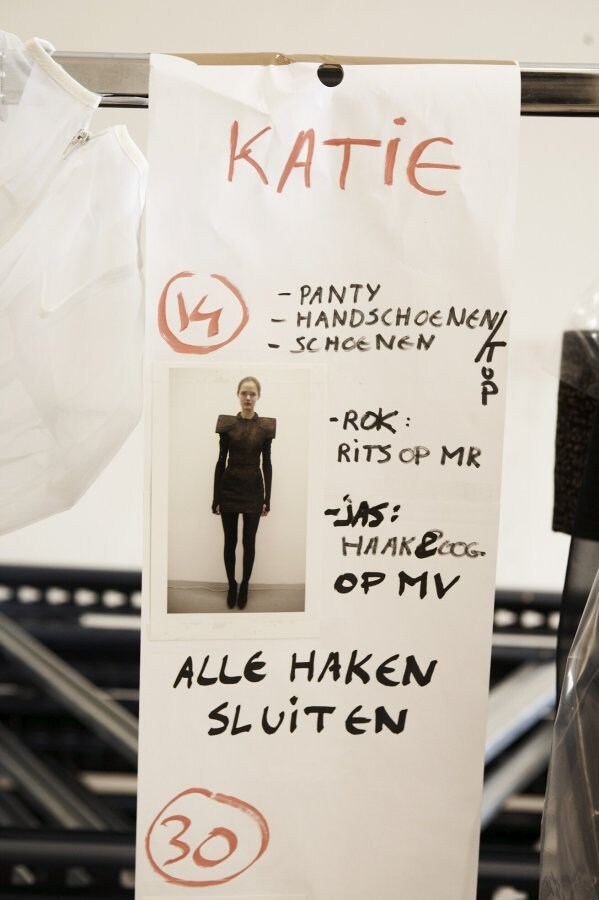 KATIE
14
- PANTY
- HANDSCHOENEN/TOP
- SCHOENEN
- ROK:
RITS OP MR
- JAS:
HAAK & OOG
OP MV
ALLE HAKEN
SLUITEN
30